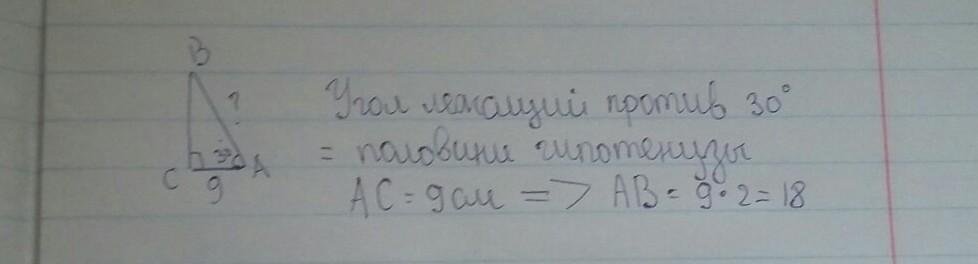 B
?
Угол лежащий против 30°
= половини гипотенузы
C 30 A
9
AC = 9 см => AB = 9·2 = 18